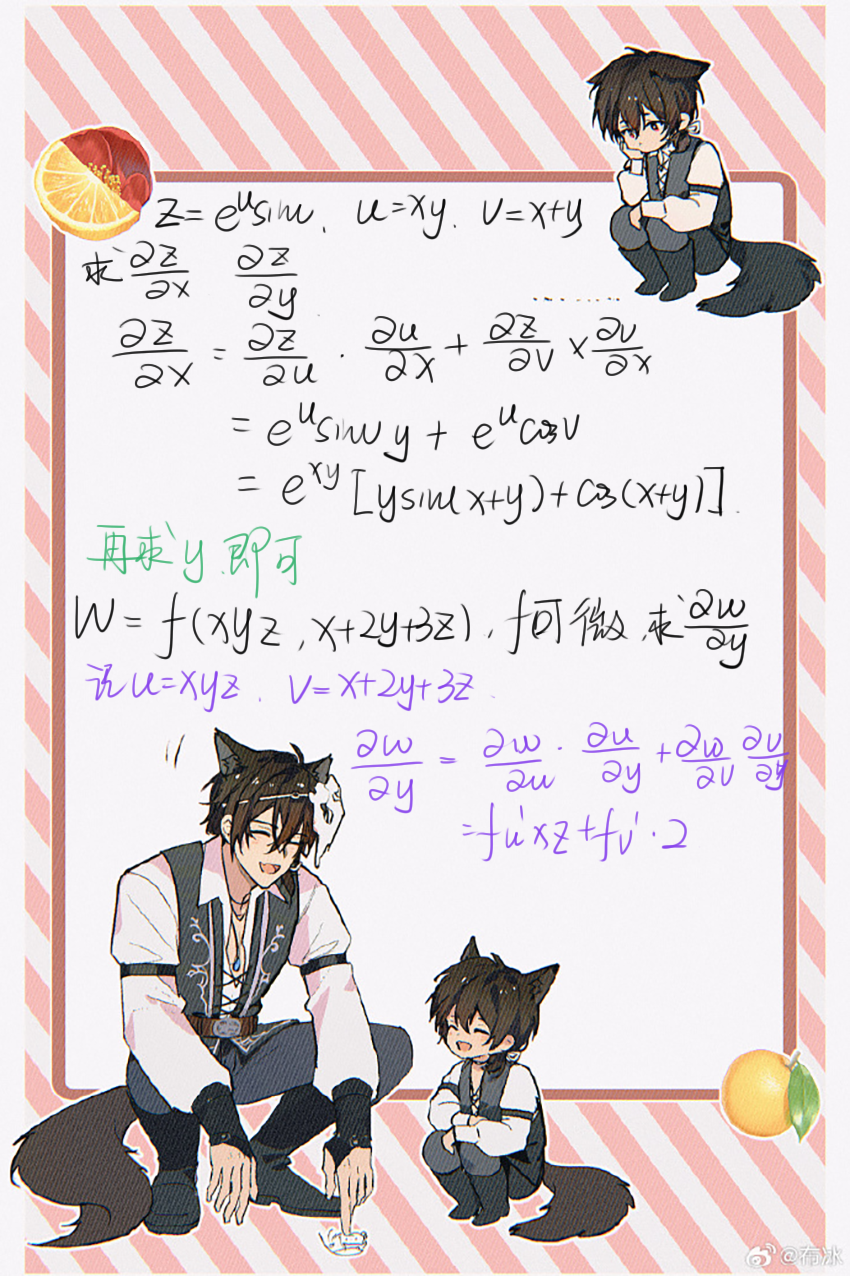 z = e^u sinv, u=xy. v=x+y
求 ∂z/∂x ∂z/∂y
∂z/∂x = ∂z/∂u · ∂u/∂x + ∂z/∂v × ∂v/∂x
= e^u sinv y + e^u cosv
= e^xy [ysin(x+y)+cos(x+y)]
再求y即可
W = f(xyz, x+2y+3z), f可微,求 ∂w/∂y
设u=xyz. v=x+2y+3z
∂w/∂y = ∂w/∂u · ∂u/∂y + ∂w/∂v ∂v/∂y
=fu'xz+fv'·2
@布冰